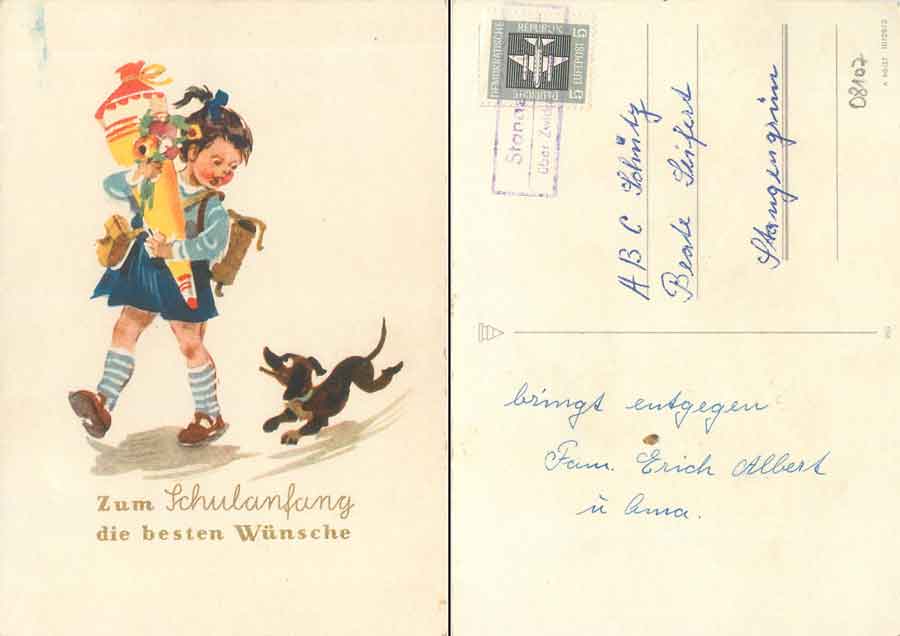 Zum Schulanfang
die besten Wünsche
DEMOKRATISCHE
REPUBLIK
DEUTSCHE
LUFTPOST 5
5
über Zwick
ABC Schütz
Beate Seifert
Stangengrün
08107
bringt entgegen
Fam. Erich Albert
u Oma.